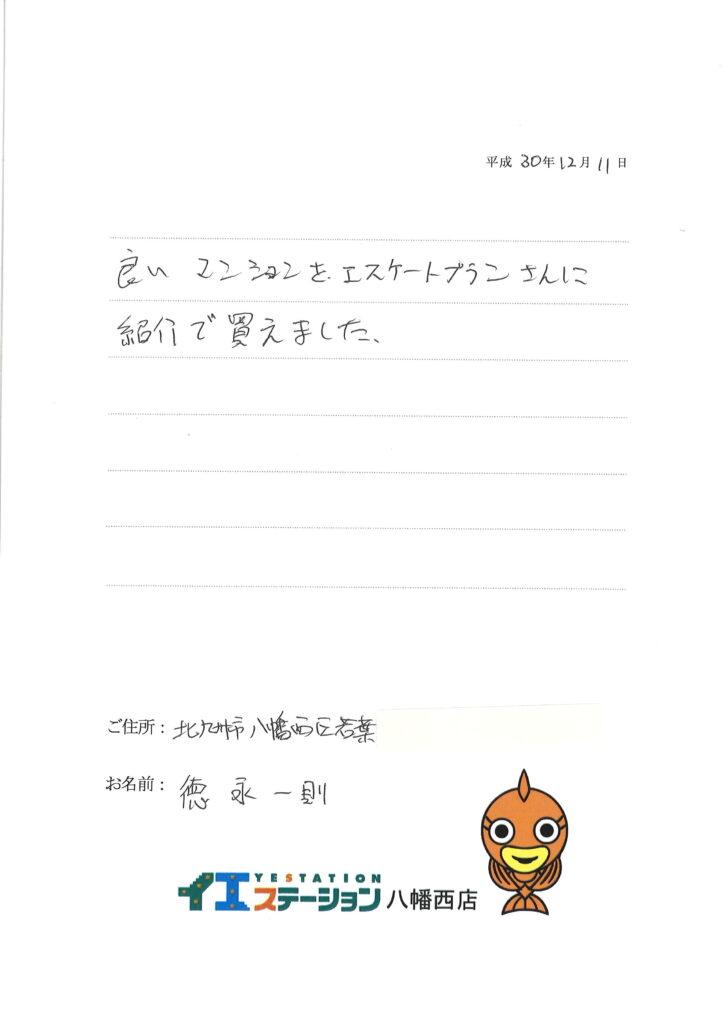 平成 30年12月11日
良い マンションを、エスケートプランさんに
紹介で買えました、
ご住所：北九州市八幡西区若葉
お名前：徳永一則
YESTATION
イエステーション八幡西店